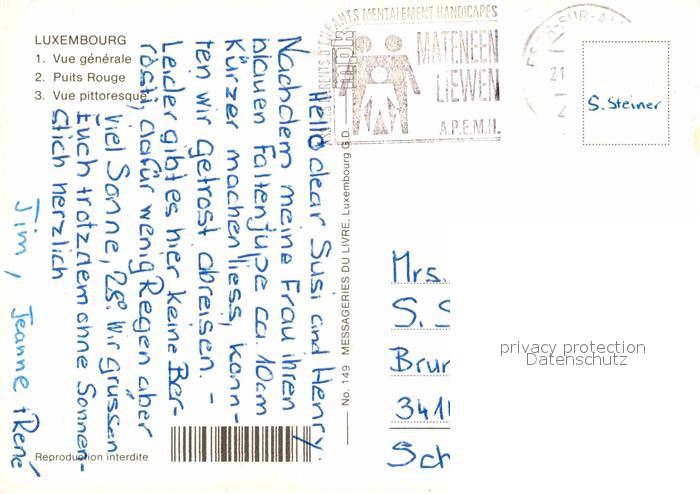 LUXEMBOURG
1. Vue générale
2. Puits Rouge
3. Vue pittoresque
Hello dear Susi and Henry.
Nachdem meine Frau ihren
blauen Faltenjupe ca. 10cm
kürzer machen liess, konn-
ten wir getrost abreisen. -
Leider gibt es hier keine Ber-
rösti, dafür wenig Regen aber
viel Sonne, 28°. Wir grüssen
Euch trotzdem ohne Sonnen-
stich herzlich
Jim, Jeanne + René
Reproduction interdite
No. 149 MESSAGERIES DU LIVRE, Luxembourg G.D.
D'ENFANTS MENTALEMENT HANDICAPES
MATENEEN
LIEWEN
A.P.E.M.H.
21
S. Steiner
Mrs.
S. S
Brun
341
Sch
privacy protection
Datenschutz